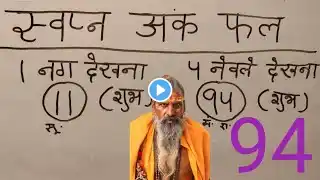 स्वप्न अंक फल
1 नग देखना 4 नेवले देखना
11 (शुभ) 94 (शुभ)
सू. मं. रा.
94